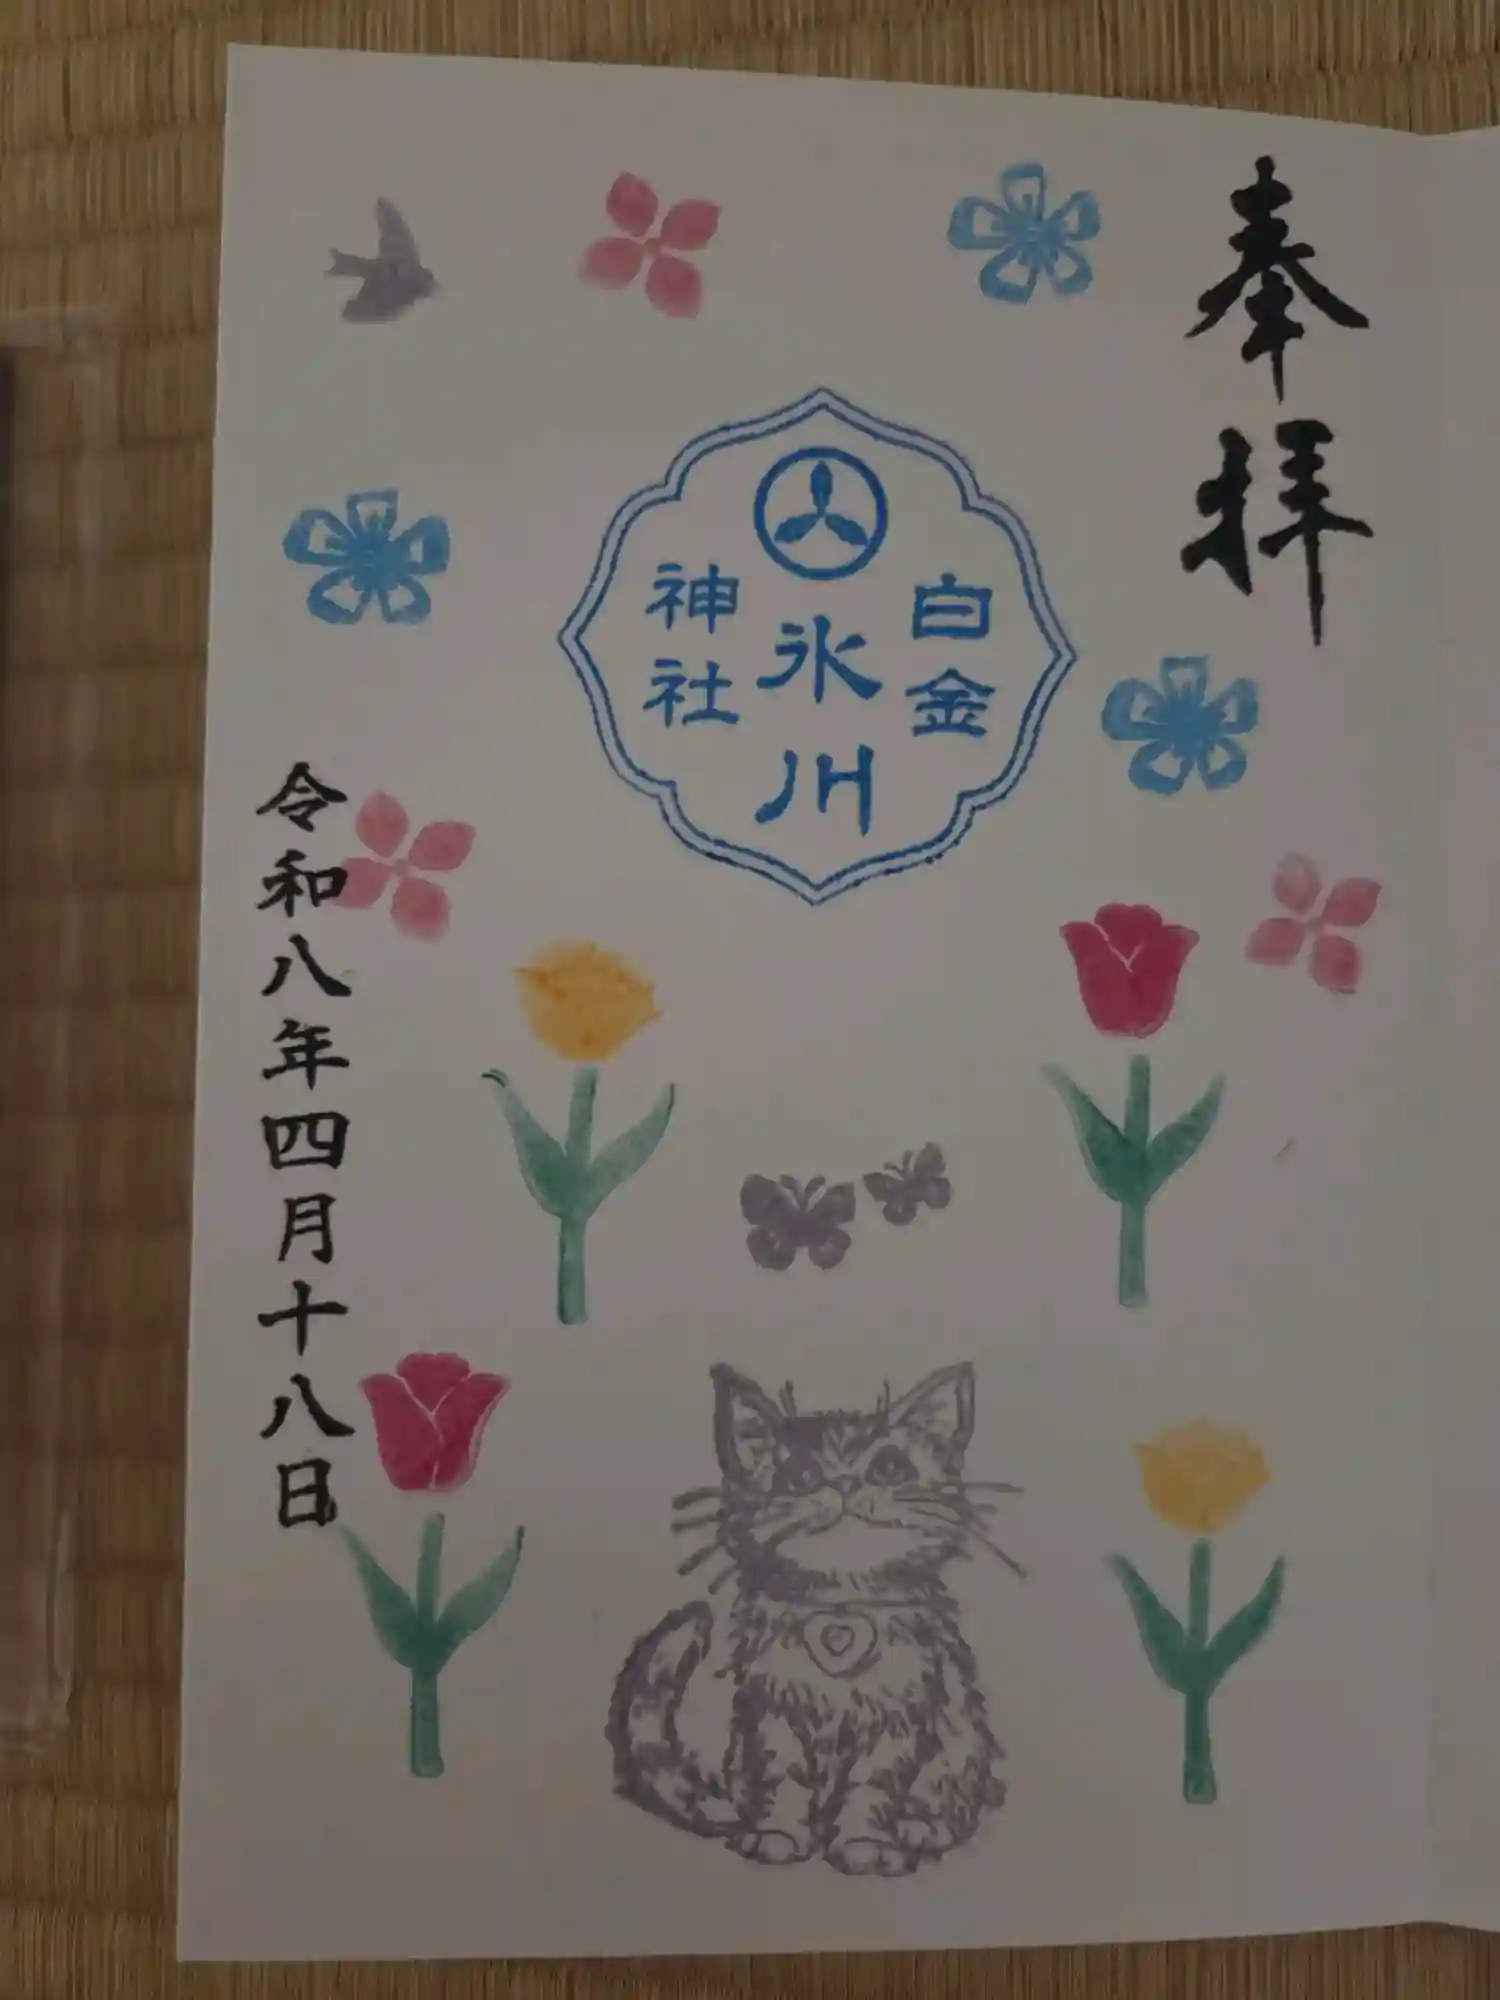 奉拝
白金
氷川
神社
令和八年四月十八日